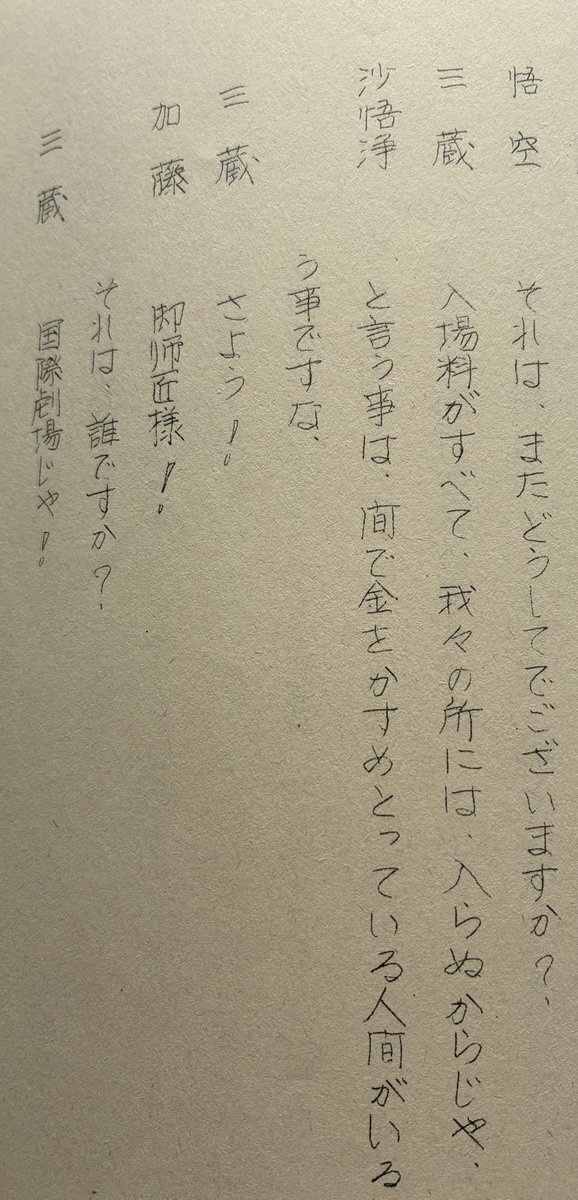 悟空 それは、またどうしてでございますか?、
三蔵 入場料がすべて、我々の所には、入らぬからじゃ、
沙悟浄 と言う事は、間で金をかすめとっている人間がいる
う事ですな、
三蔵 さよう!
加藤 御師匠様!
それは、誰ですか?
三蔵 国際劇場じゃ!